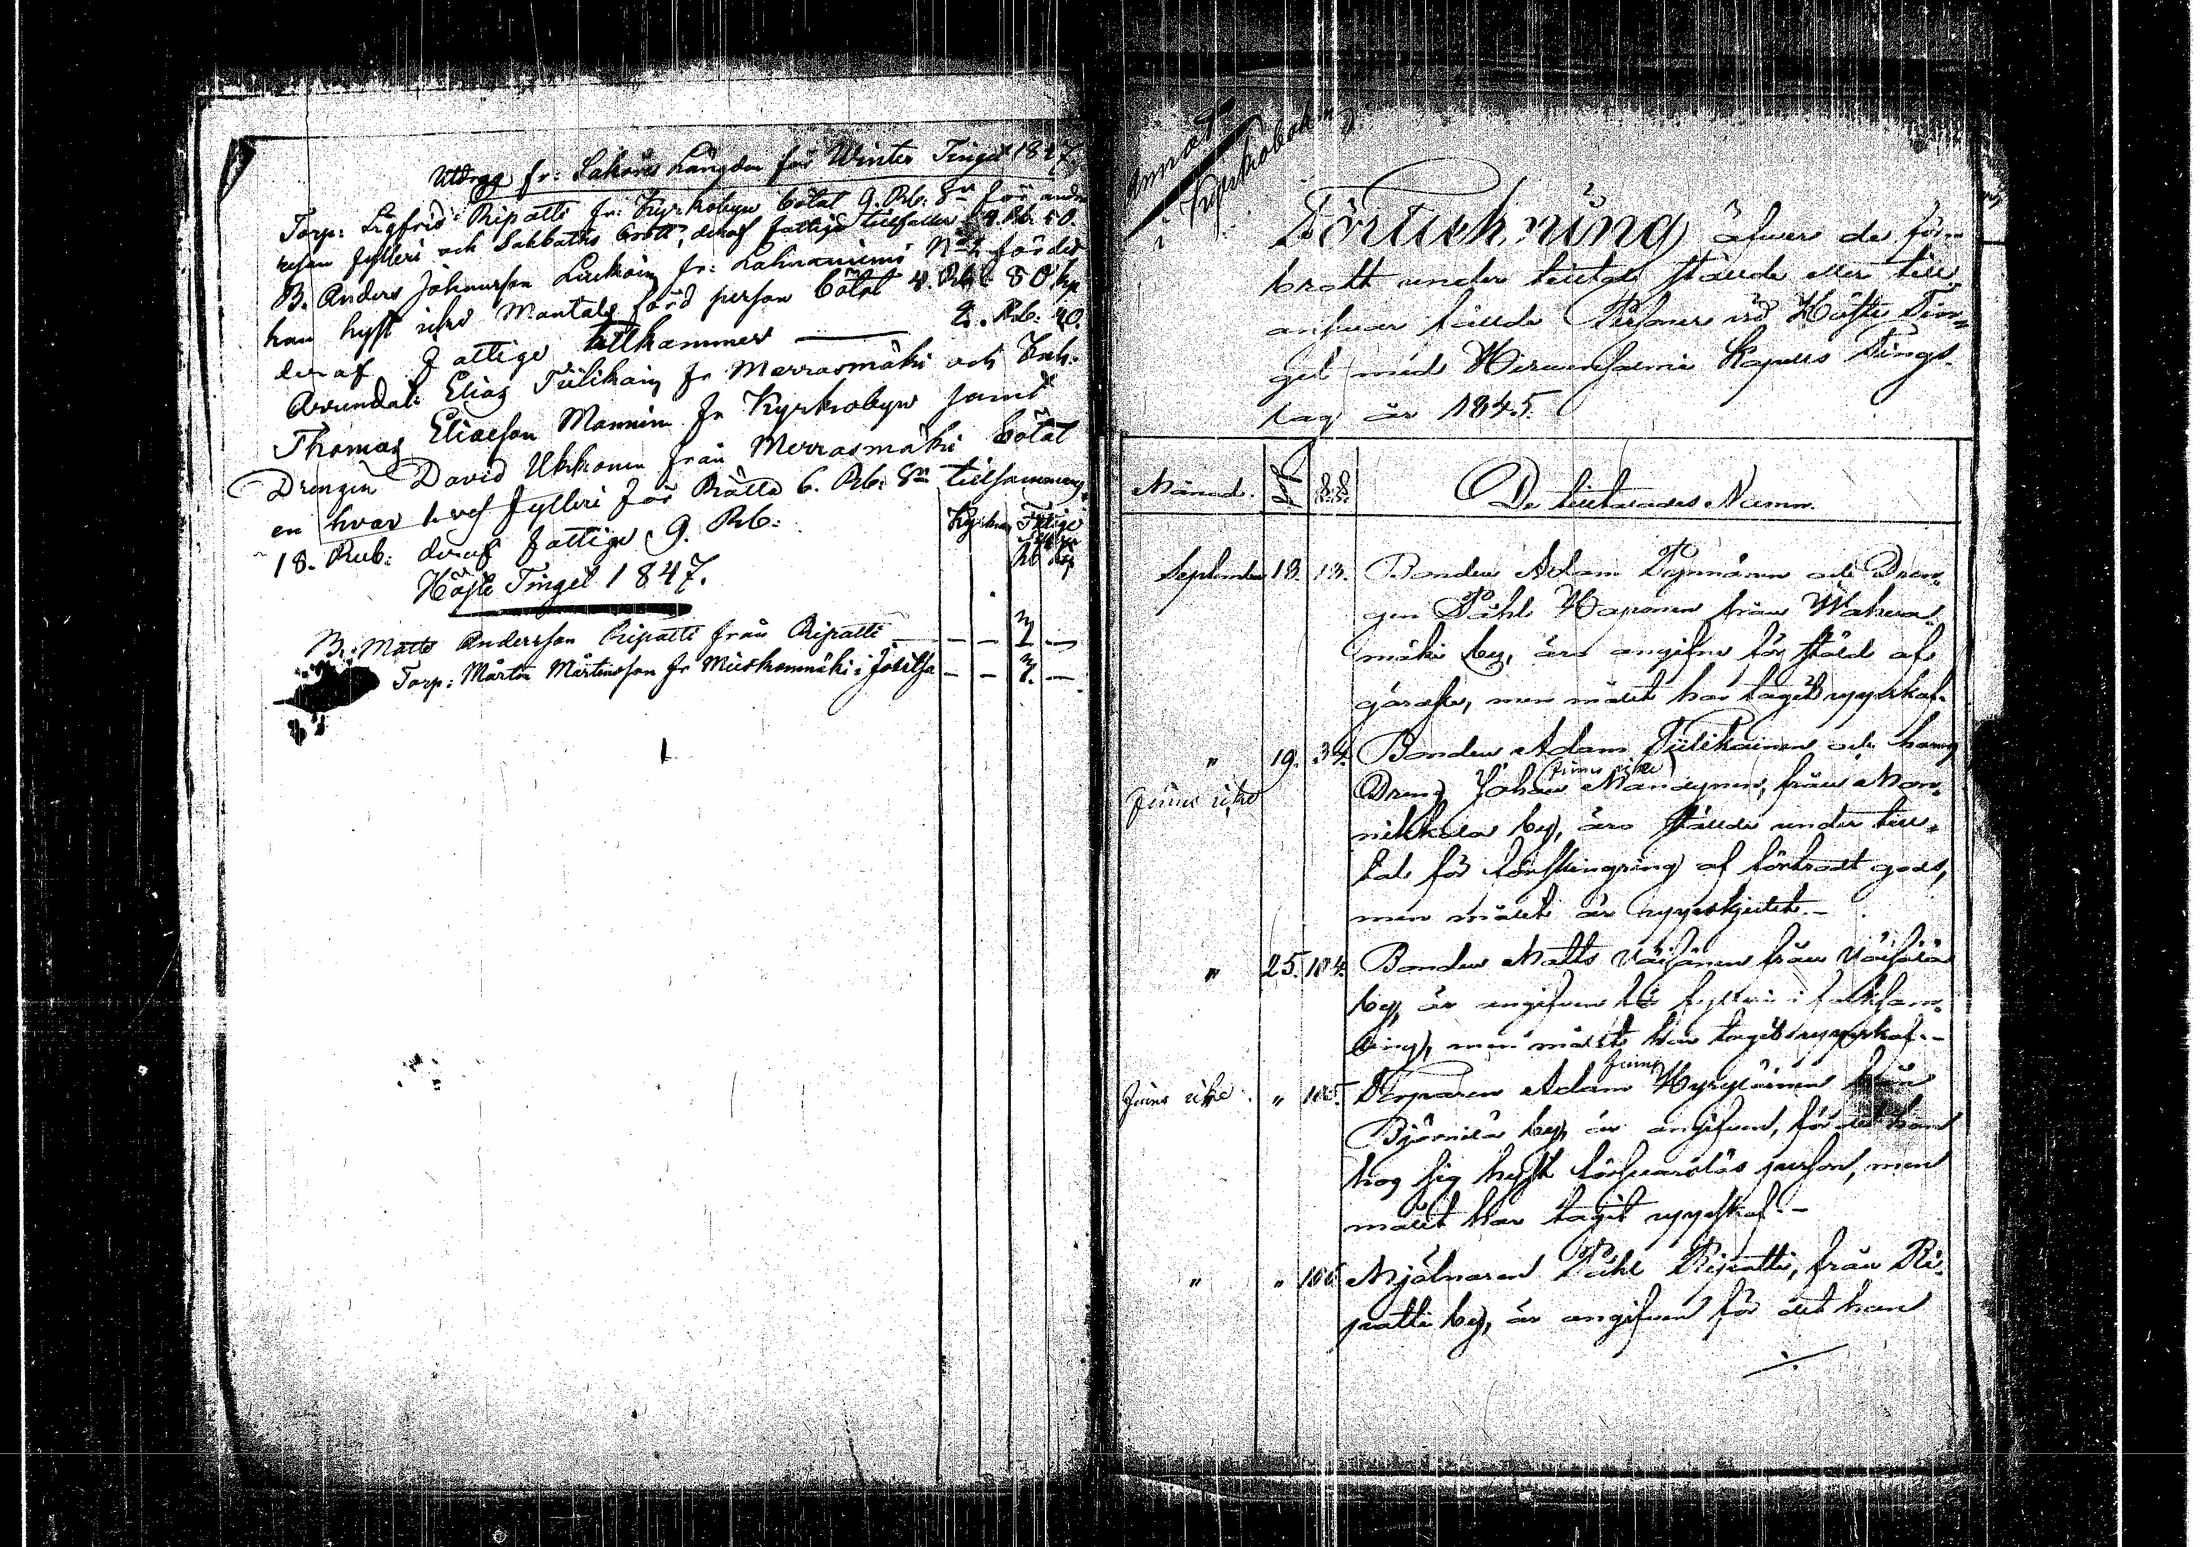 Utdrag fr: Saköres Längden för Winter Tinget 1847.
Torp: Sigfrid Ripatti fr: Kyrkobyn bötat 9. Rub. Sr för andra
resan fylleri och Sabbaths brott, deraf fattige tillfaller 4. Rub. 50.
B. Anders Johansson Luckoin fr: Lahnaniemi No 2 för det
han hyst icke Mantals förd person bötat 4. Rub. 80 kop
deraf fattige tillkommer — 2. Rub. 40.
Arrendat: Elias Tiilikain fr Marrasmäki och Enk:
Thomas Eliasson Mannin fr Kyrkobyn samt
Drengen David Ukkonen från Merrasmäki bötat
en hvar 1. res fylleri för Rätta 6. Rub: Sr tillsammans
18. Rub: deraf fattige 9. Rub:
Kyrkan Fattige
Rb Kop
Höste Tinget 1847.
B: Matts Andersson Ripatti från Ripatti — — —
Torp: Mårten Mårtensson fr Mieskonmäki i Joutsa — — —
Annot
i Kyrkoboken
Förtekning öfver de för
brott under tilltal stälde eller till
ansvar fälde Personer vid Höste Tin-
get med Hirvensalmi Kapells Tings-
lag år 1845.
Månad. §§. De tilltalades Namn.
September 13. 13. Bonden Adam Pynnönen och Dren-
gen Påhl Haponen från Wahva-
mäki by, äro angifne för stöld af
gärdsle, men målet har tagit uppskof.
" 19. 34. Bonden Adam Tiilikainen och hans
finns icke
Finns icke Dreng Johan Manninen, från Mon-
nikkala by, äro stälde under till-
tal för förskingring af förtrodt gods,
men målet är uppskjutet.-
" 25. 104. Bonden Matts Väisänen från Väisälä
by, är angifven för fylleri i folksam-
ling, men målet har tagit uppskof.-
finns
Finns icke. " 105. Torparen Adam Hyrylöinen från
Björnilä by, är angifven, för det han
hos sig hyst försvarslös person, men
målet har tagit uppskof.-
" " 106. Mjölnaren Påhl Ripatti, från Ri-
patti by, är angifven för det han
./.